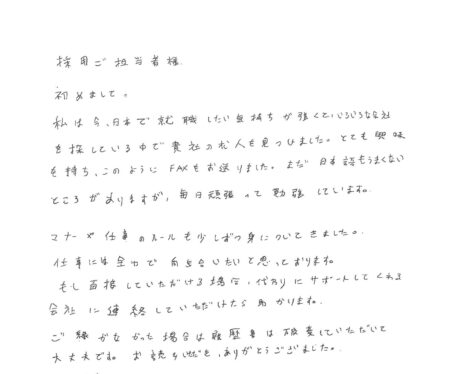 採用ご担当者様
初めまして。
私は今、日本で就職したい気持ちが強くていろいろな会社
を探している中で貴社の求人を見つけました。とても興味
を持ち、このようにFAXをお送りました。まだ日本語もうまくない
ところがありますが、毎日頑張って勉強しています。
マナーや仕事のルールも少しずつ身についてきました。
仕事には全力で向き合いたいと思っております。
もし面接していただける場合、代わりにサポートしてくれる
会社に連絡していただけたら助かります。
ご縁がなかった場合は履歴書は破棄していただいて
大丈夫です。お読みいただき、ありがとうございました。